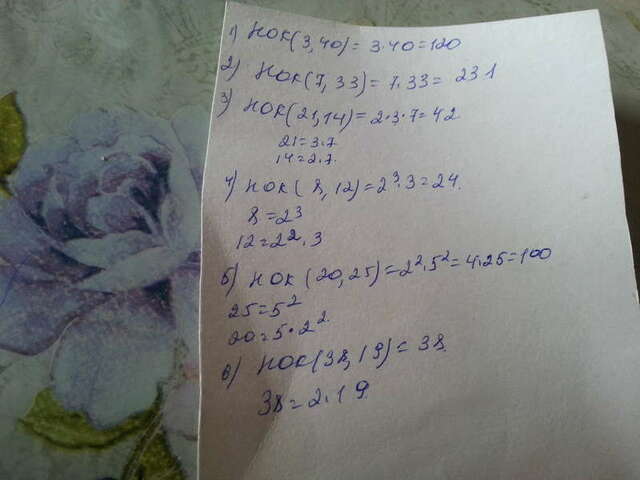 1) НОК(3,40)=3·40=120
2) НОК(7,33)=7·33=231
3) НОК(21,14)=2·3·7=42
21=3·7
14=2·7.
4) НОК(8,12)=2³·3=24.
8=2³
12=2²·3
5) НОК(20,25)=2²·5²=4·25=100
25=5²
20=5·2²
6) НОК(38,19)=38.
38=2·19